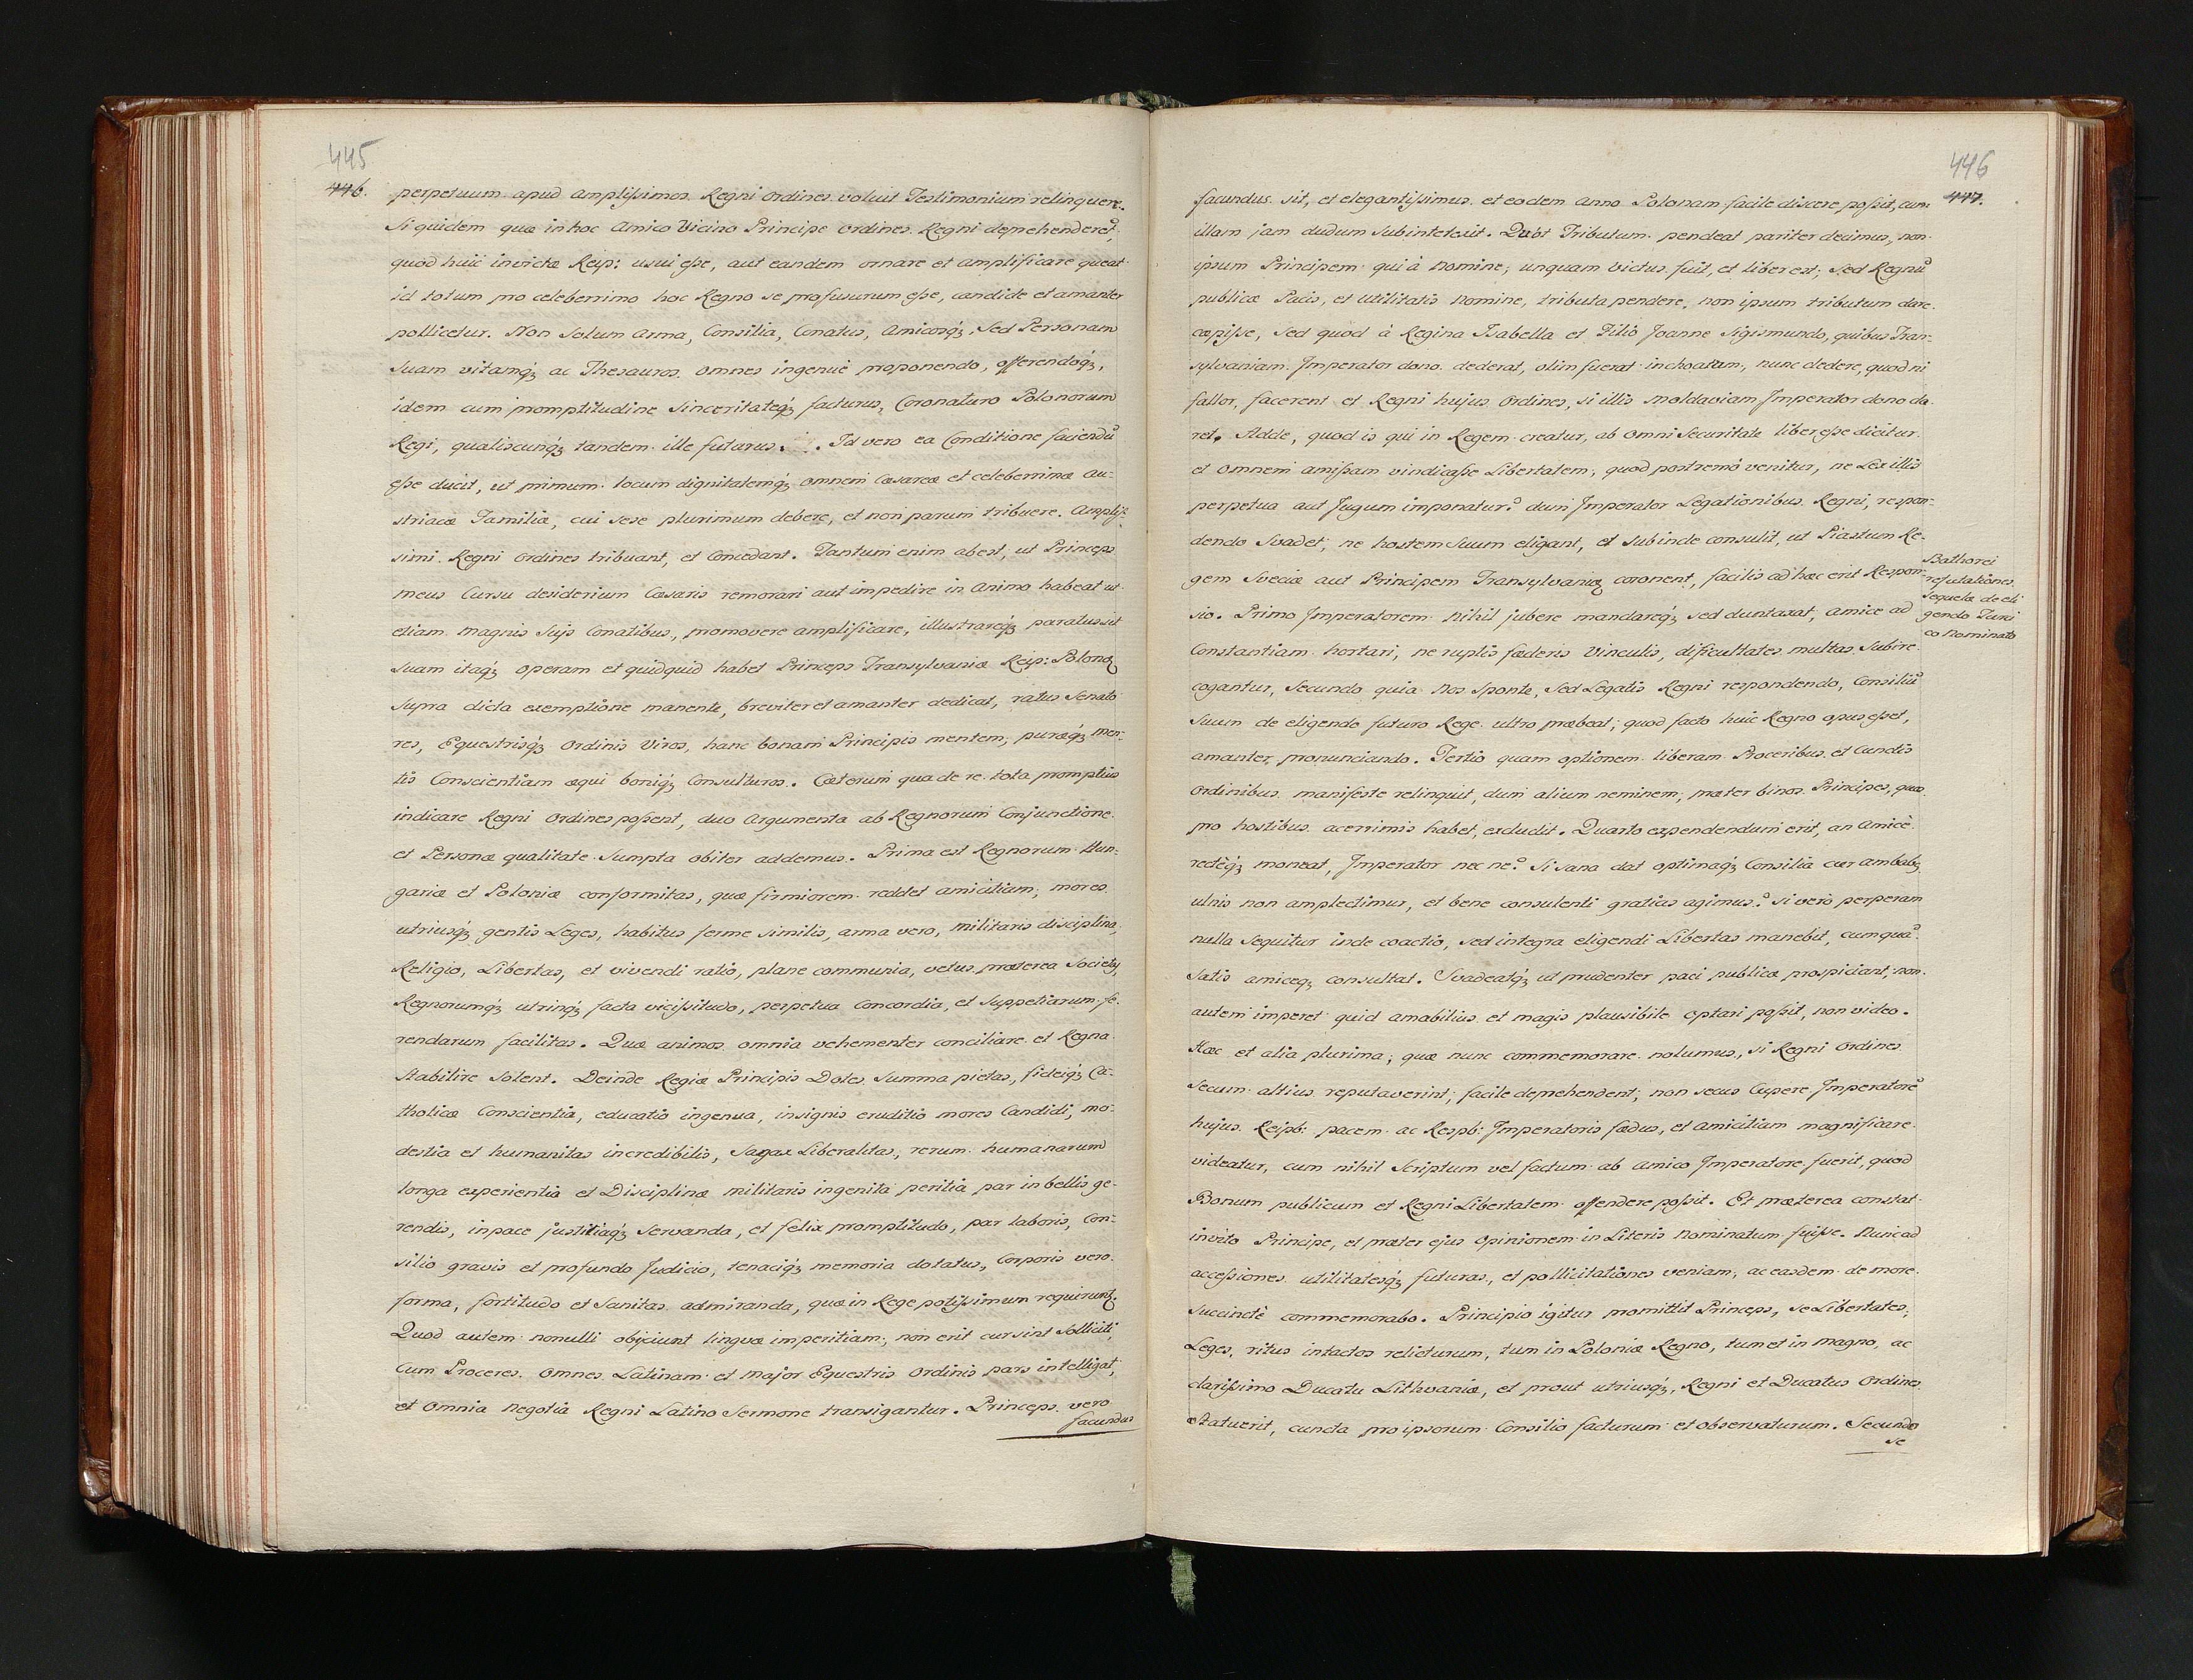 445
446.
perpetuum apud amplißimos Regni Ordines voluit Testimonium relinquere.
Siquidem quæ in hoc Amico Vicino Principe Ordines Regni deprehenderet,
quod huic invictæ Reip: usui eße, aut eandem ornare et amplificare queat
id totum pro celeberrimo hoc Regno se profusurum eße, candide et amanter
pollicetur. Non Solum Arma, Consilia, Conatus, Amicosq́; Sed Personam
Suam vitamq́; ac Thesauros omnes ingenuè proponendo, offerendóq́;,
idem cum promptitudine Sinceritateq́; facturus, Coronaturo Polonorum
Regi, qualiscunq́; tandem ille futurus. Id vero ea Conditione faciendū
eße ducit, ut primum locum dignitatemq́; omnem Cæsareæ et celeberrimæ Au-
striacæ Familiæ, cui sese plurimum debere, et non parum tribuere. Ampliß-
simi Regni Ordines tribuant, et Concedant. Tantum enim abest, ut Princeps
meus Cursu desiderium Cæsaris remorari aut impedire in Animo habeat ut
etiam magnis Suis Conatibus, promovere amplificare, illustrareq́; paratus sit
Suam itaq́; operam et quidquid habet Princeps Transylvaniæ Reip: Polonæ
Supra dicta exemptione manente, breviter et amanter dedicat, ratus Senato
res, Equestrisq́; Ordinis Viros, hanc bonam Principis mentem, puræq́; men-
tis Conscientiam æqui boniq́; Consulturos. Cæterum qua de re tota promptius
indicare Regni Ordines poßent, duo Argumenta ab Regnorum Conjunctione
et Personæ qualitate Sumpta obiter addemus. Prima est Regnorum Hun-
gariæ et Poloniæ conformitas, quæ firmiorem reddet amicitiam, mores
utriusq́; gentis Leges, habitus ferme similis, arma vero, militaris disciplina,
Religio, Libertas, et vivendi ratio, plane communia, vetus præterea Societas,
Regnorumq́; utrinq́; facta vicißitudo, perpetua Concordia, et Suppetiarum fe-
rendarum facilitas. Quæ animos omnia vehementer conciliare et Regna
Stabilire Solent. Deinde Regiæ Principis Dotes Summa pietas, fideiq́; Ca-
tholicæ Conscientia, educatio ingenua, insignis eruditio mores Candidi, mo-
destia et humanitas incredibilis, Sagax Liberalitas, rerum humanarum
longa experientia et Disciplinæ militaris ingenita peritia par in bellis ge-
rendis, in pace justitiaq́; Servanda, et felix promptitudo, par laboris, Con-
silio gravis et profundo Judicio, tenaciq́; memoria dotatus, Corporis vero
forma, fortitudo et Sanitas admiranda, quæ in Rege potißimum requirunt.
Quod autem nonulli objiciunt linguæ imperitiam, non erit cur sint Solliciti,
Cum Proceres Omnes Latinam et major Equestris Ordinis pars intelligat,
et Omnia Negotia Regni Latino Sermone transigantur. Princeps vero
facundus
446
447.
facundus sit, et elegantißimus et eodem anno Polonam facile discere poßit, cum
illam jam dudum Subintelexit. Quòt Tributum pendeat pariter decimus, non
ipsum Principem qui à Nomine, unquam victus fuit, et liber est, Sed Regnū
publicæ Pacis, et utilitatis Nomine, tributa pendere, non ipsum tributum dare
cæpiße, Sed quod à Regina Isabella et Filio Joanne Sigismundo, quibus Tran-
sylvaniam Imperator dono dederat, olim fuerat inchoatum, nunc dedere, quod ni
fallor, facerent et Regni hujus Ordines, si illis Moldaviam Imperator dono da-
ret. Adde, quod is qui in Regem creatur, ab Omni Securitate liber eße dicitur
et omnem amißam vindicaße Libertatem, quod postremó venitur, ne Lex illis
perpetua aut Jugum imponatur? dum Imperator Legationibus Regni, respon-
dendo Svadet, ne hostem Suum eligant, et Subinde consulit, ut Piastum Re-
gem Sveciæ aut Principem Transylvaniæ coronent, facilis ad hæc erit Respon-
sio. Primo Imperatorem Nihil jubere mandareq́; sed duntaxat, amice ad
Constantiam hortari, ne ruptis fæderis Vinculis, dificultates multas Subire
cogantur, Secundo quia Nos Sponte, Sed Legatis Regni respondendo, Consiliū
Suum de eligendo futuro Rege ultro præbeat, quod facto huic Regno opus eßet,
amanter pronunciando. Tertio quam optionem liberam Proceribus et Cunctis
Ordinibus manifeste relinquit, dum alium neminem, præter binos Principes, quos
pro hostibus acerrimis habet, excludit. Quarto expendendum erit, an Amicè
rectèq́; moneat, Imperator nec ne? Si sana dat optimaq́; Consilia cur ambabq
ulnis non amplectimur, et bene consulenti gratias agimus? si verò perperam
nulla Sequitur inde coactio, sed integra eligendi Libertas manebit, cumquā
Satis amiceq; consultat. Svadeatq́; ut prudenter paci publicæ prospiciant, non
autem imperet quid amabilius et magis plausibile optari poßit, non video.
Hæc et alia plurima, quæ nunc commemorare nolumus, si Regni Ordines
Secum altius reputaverint, facile deprehendent, non secus Cupere Imperatorē
hujus Reipb: pacem ac Respb: Imperatoris fædus, et amicitiam magnificare
videatur, cum nihil Scriptum vel factum ab Amico Imperatore fuerit, quod
Bonum publicum et Regni Libertatem offendere poßit. Et præterea constat
invito Principe, et præter ejus Opinionem in Literis Nominatum fuiße. Nunc ad
acceßiones utilitatesq́; futuras, et pollicitationes veniam, ac easdem de more
Succinctè commemorabo. Principio igitur promittit Princeps, se Libertates,
Leges, ritus intactos relicturum, tum in Poloniæ Regno, tum et in Magno, ac
clarißimo Ducatu Lithvaniæ, et prout utriusq́; Regni et Ducatus Ordines
Statuerit, cuncta pro ipsorum Consilio facturum et observaturum. Secundo
se
Bathorei
refutationes
Sequelæ de eli
gendo Turci
co Nominato